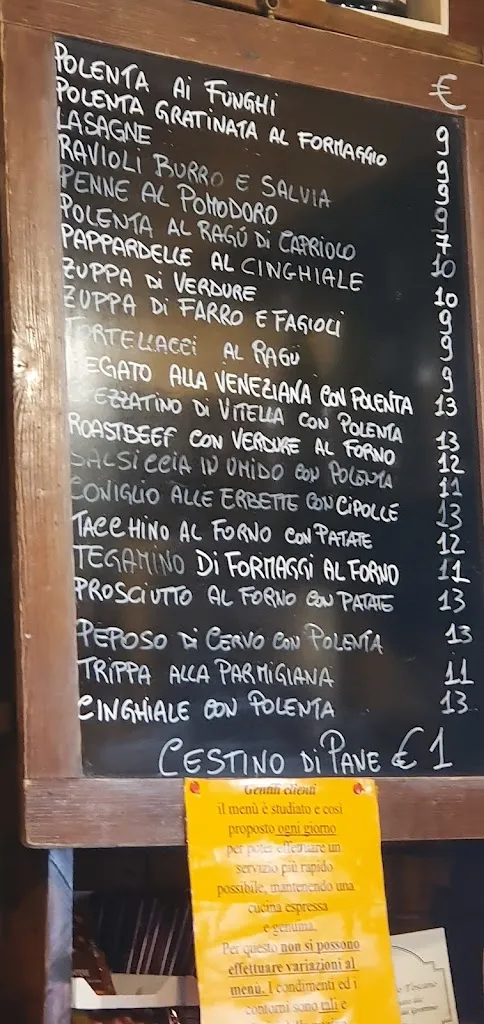 €
POLENTA AI FUNGHI 9
POLENTA GRATINATA AL FORMAGGIO 9
LASAGNE 9
RAVIOLI BURRO E SALVIA 9
PENNE AL POMODORO 7
POLENTA AL RAGÚ DI CAPRIOLO 10
PAPPARDELLE AL CINGHIALE 10
ZUPPA DI VERDURE 9
ZUPPA DI FARRO E FAGIOLI 9
TORTELLACCI AL RAGÚ 9
FEGATO ALLA VENEZIANA CON POLENTA 13
SPEZZATINO DI VITELLA CON POLENTA 13
ROASTBEEF CON VERDURE AL FORNO 12
SALSICCIA IN UMIDO CON POLENTA 11
CONIGLIO ALLE ERBETTE CON CIPOLLE 13
TACCHINO AL FORNO CON PATATE 12
TEGAMINO DI FORMAGGI AL FORNO 11
PROSCIUTTO AL FORNO CON PATATE 13
PEPOSO DI CERVO CON POLENTA 13
TRIPPA ALLA PARMIGIANA 11
CINGHIALE CON POLENTA 13
CESTINO DI PANE € 1
Gentili clienti
il menù è studiato e così
proposto ogni giorno
per poter effettuare un
servizio più rapido
possibile, mantenendo una
cucina espressa
e genuina.
Per questo non si possono
effettuare variazioni al
menù. I condimenti ed i
contorni sono tali e
Toscano